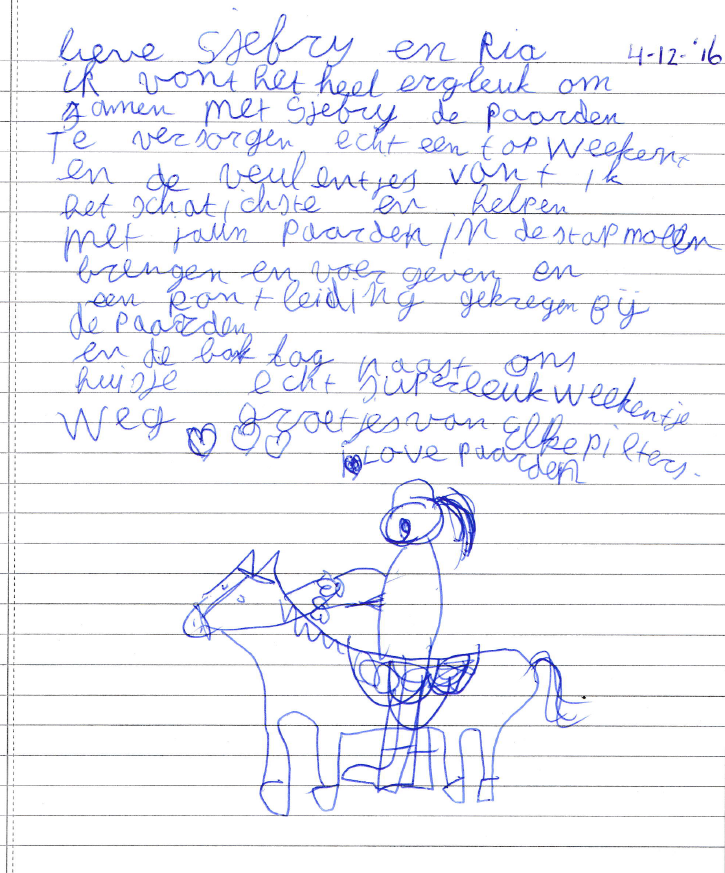 lieve Sjebry en Ria 4-12-'16
ik vont het heel ergleuk om
zamen met Sjebry de paarden
Te versorgen echt een top weekent
en de veulentjes vont ik
het schatichste en helpen
met jaun paarden in de stapmolen
brengen en voer geven en
een rontleiding gekregen bij
de paarden
en de bak lag naast ons
huisje echt superleuk weekentje
weg groetjes van Elke pilters.
i love paarden